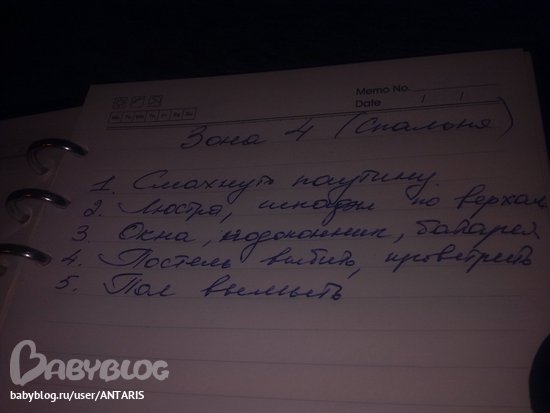 Memo No.
Date / /
Mo Tu We Th Fr Sa Su
Зона 4 (спальня)
1. Смахнуть паутину.
2. Люстра, шкафы по верхам
3. Окна, подоконник, батарея
4. Постель выбить, проветрить
5. Пол вымыть
BABYBLOG
babyblog.ru/user/ANTARIS